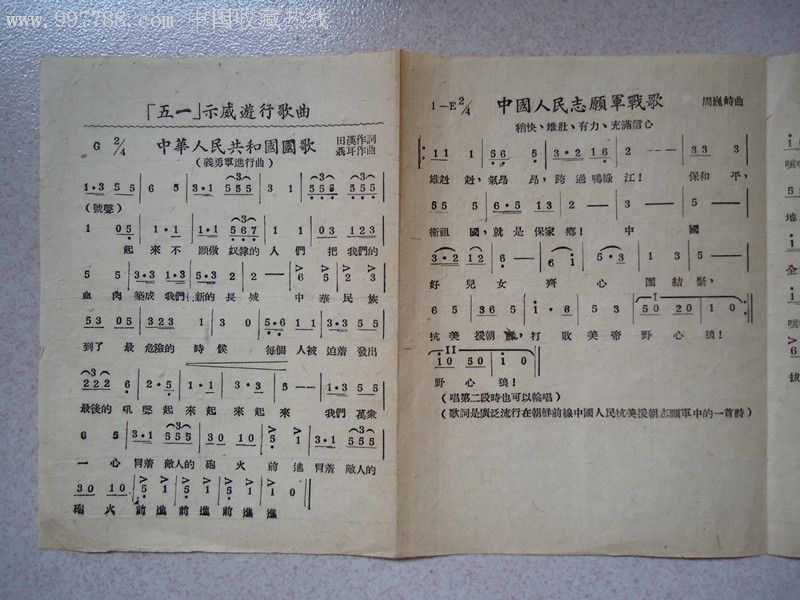 www.997788.com 中国收藏热线
「五一」示威遊行歌曲
G 2/4 中華人民共和國國歌 田漢作詞
聶耳作曲
(義勇軍進行曲)
1·3 5 5 | 6 5 | 3·1 555 | 3 1 | 555 555
(號聲)
1 05 | 1·1 | 1·1 567 | 1 1 | 03 123
起來不願做奴隸的人們 把我們的
5 5 | 3·3 1·3 | 5·3 2 | 2 — | 6 5 | 2 3
血肉築成我們新的長城 中華民族
53 05 | 323 | 1 3 0 | 5·6 11 | 3·3 55
到了最危險的時候 每個人被迫着發出
222 6 | 2·5 | 1·1 | 3·3 | 5 — | 1·3 55
最後的吼聲起來起來起來 我們萬衆
6 5 | 3·1 555 | 30 10 | 5 1 | 3·1 555
一心冒着敵人的砲火前進冒着敵人的
30 10 | 5 1 | 5 1 | 5 1 | 1 0
砲火前進前進前進進
1—E 2/4 中國人民志願軍戰歌 周巍峙曲
稍快、雄壯、有力、充滿信心
1 1 1 | 56 5 | 3·2 16 | 2 — | 33 3
雄赳赳,氣昂昂,跨過鴨綠江! 保和平,
55 5 | 6·5 13 | 2 — | 3 — | 5 —
衛祖國,就是保家鄉! 中國
3·2 12 | 6 — | 6 1 | 5·3 | 2 —
好兒女齊心團結緊,
6 5 | 36 5 | 1·6 | 5 3 | 50 20 | 1 0
抗美援朝鮮,打敗美帝野心狼!
II
10 50 | 1 0
野心狼!
(唱第二段時也可以輪唱)
(歌詞是廣泛流行在朝鮮前線中國人民抗美援朝志願軍中的一首詩)
地
全
拔